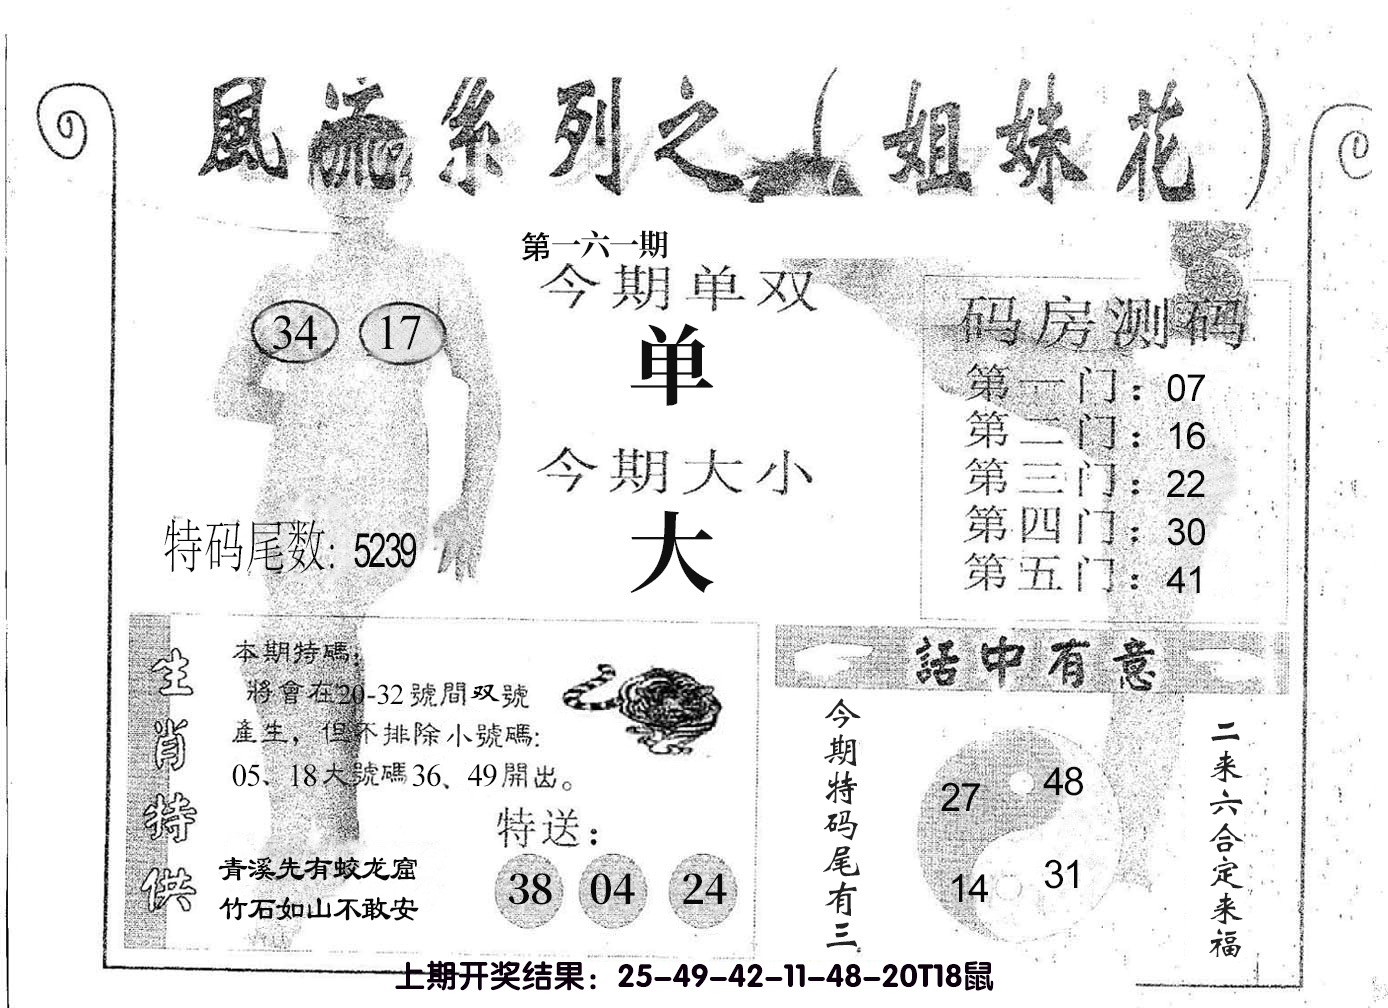 風流系列之（姐妹花）
第一六一期
今期单双
单
今期大小
大
34 17
特码尾数: 5239
码房测码
第一门：07
第二门：16
第三门：22
第四门：30
第五门：41
生肖特供
本期特碼；
將會在20-32號間双號
產生，但不排除小號碼:
05、18大號碼36、49開出。
特送：
38 04 24
青溪先有蛟龙窟
竹石如山不敢安
話中有意
今期特码尾有三
27 48
14 31
二来六合定来福
上期开奖结果：25-49-42-11-48-20T18鼠